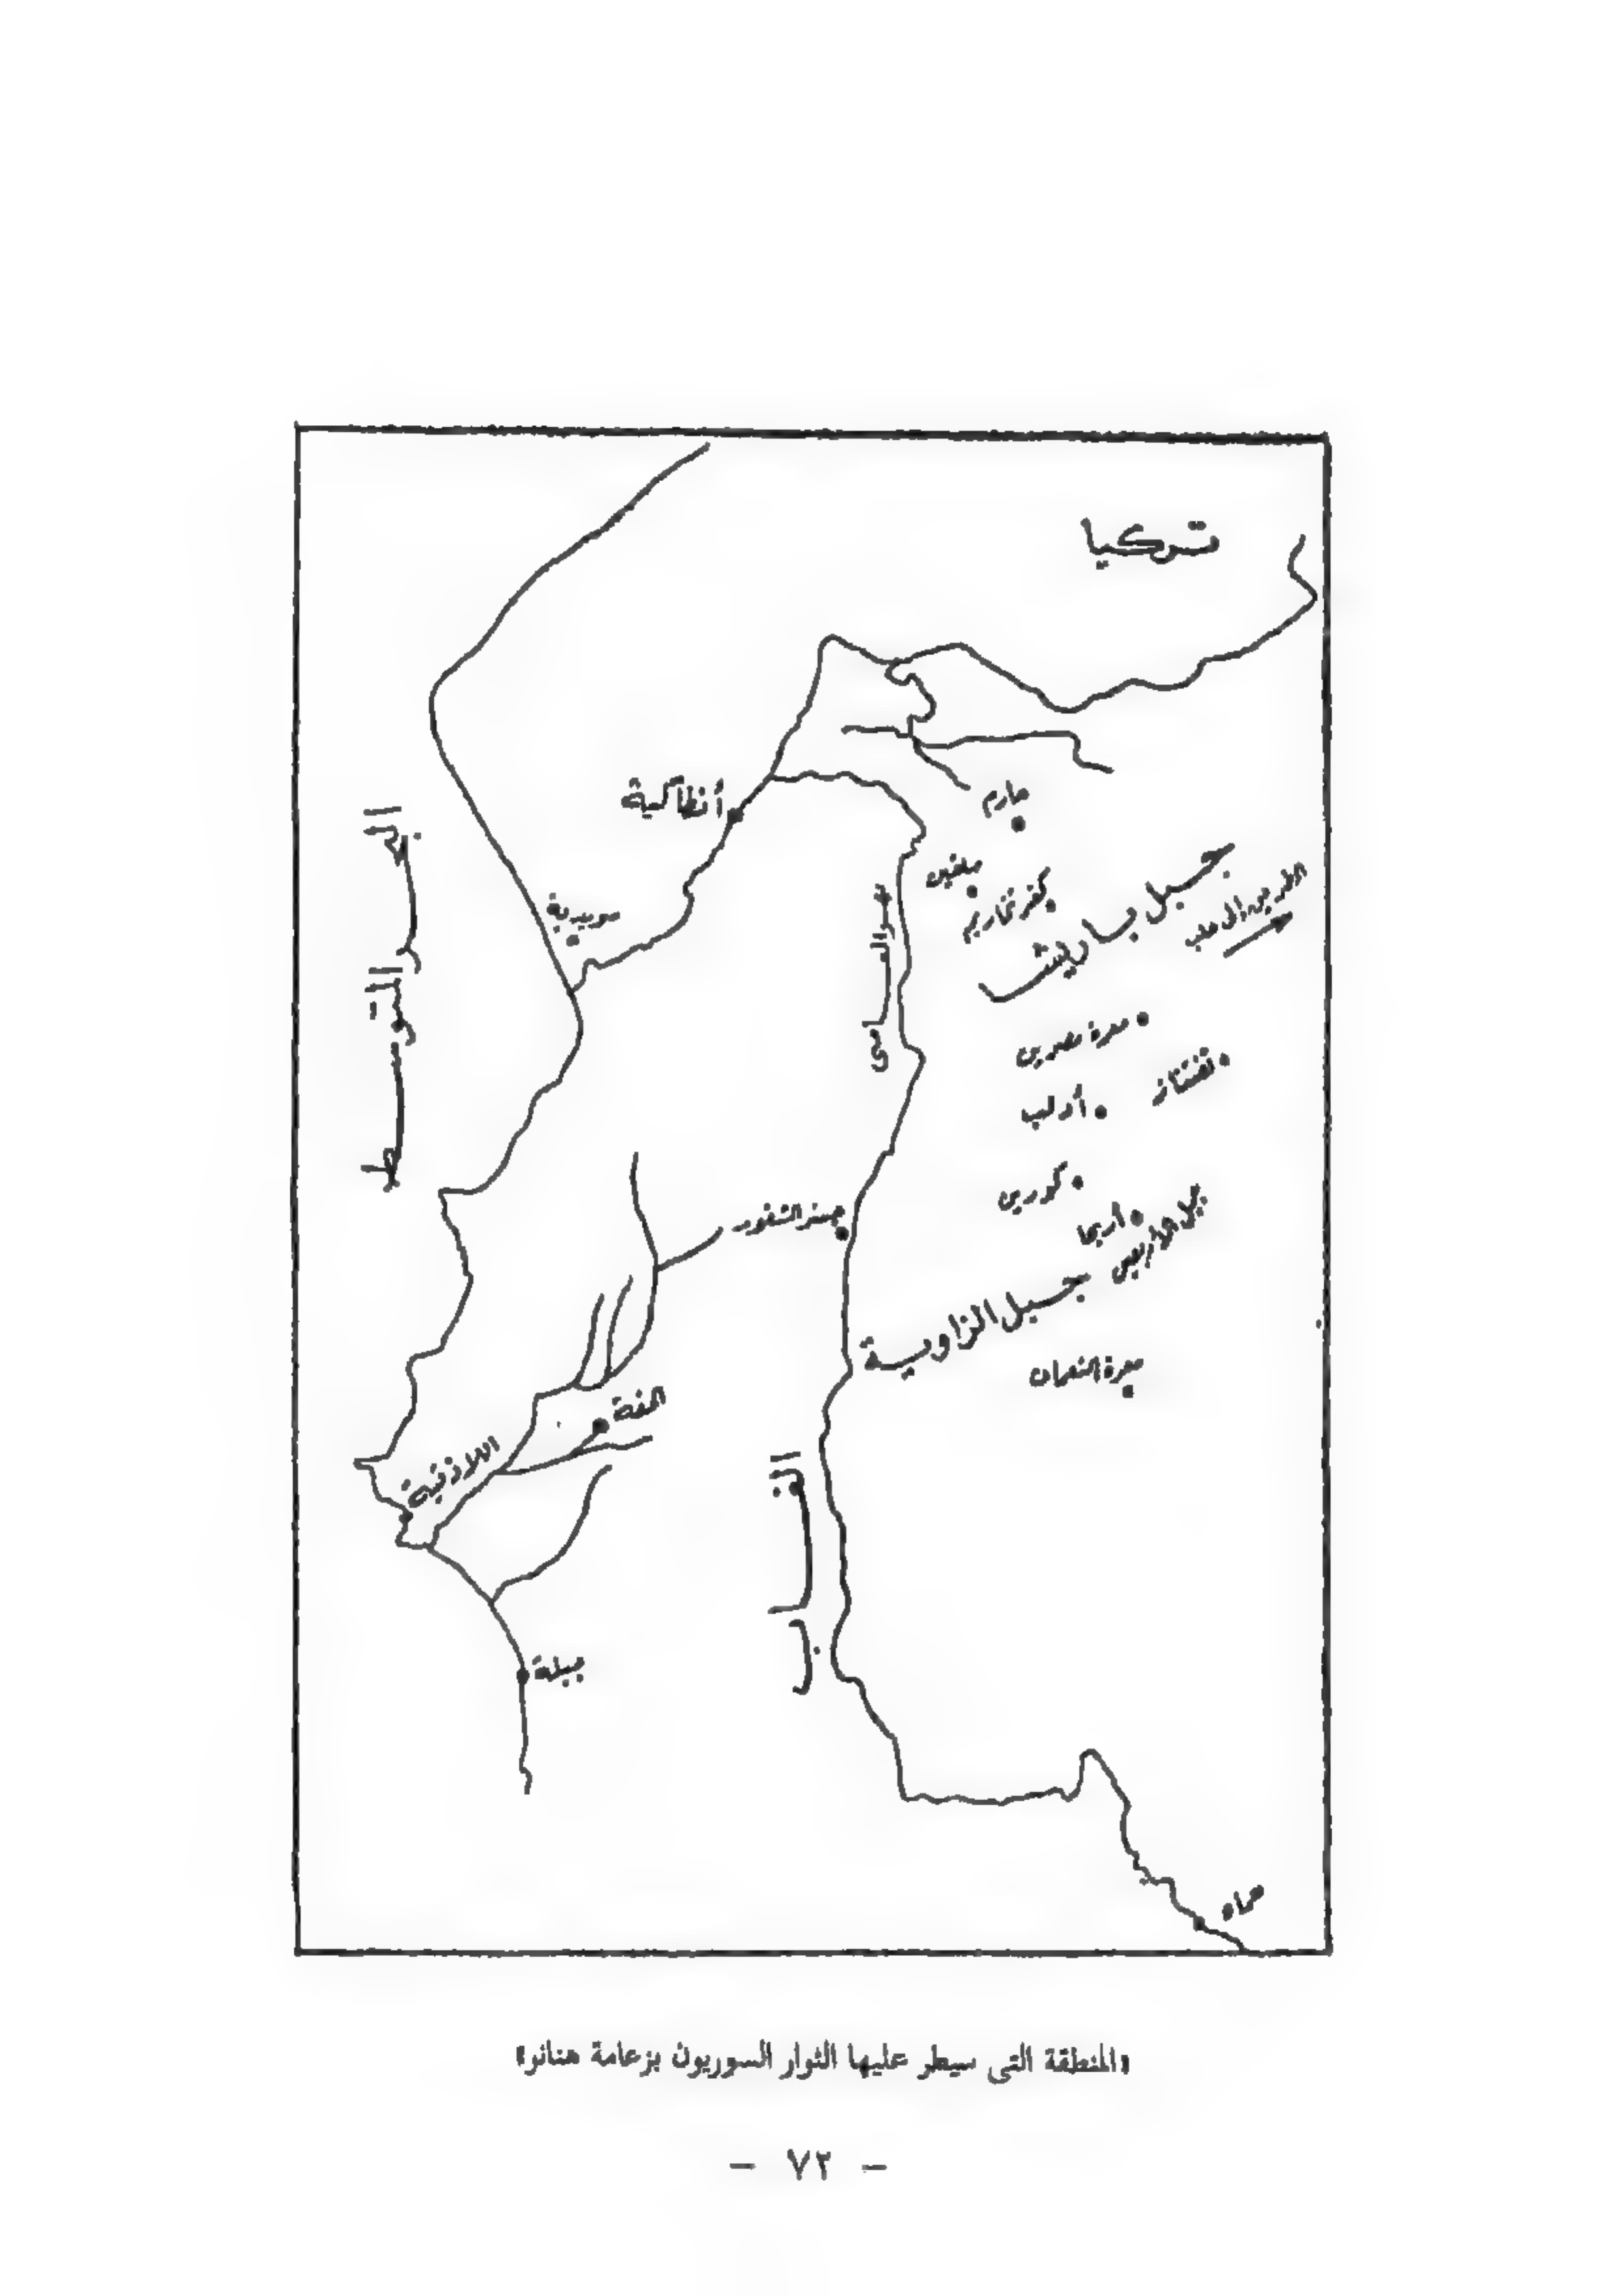 تركيا
أنطاكية
حارم
سلقين
كفر تخاريم
جبل باريشا
الطريق إلى حلب
سويدية
البحر المتوسط
نهر العاصي
معرة مصرين
تفتناز
أدلب
كورين
أريحا
جبل الأربعين
جسر الشغور
جبل الزاوية
معرة النعمان
الحفة
اللاذقية
الغاب
جبلة
حماه
«المنطقة التي سيطر عليها الثوار السوريون بزعامة هنانو»
— ٧٢ —